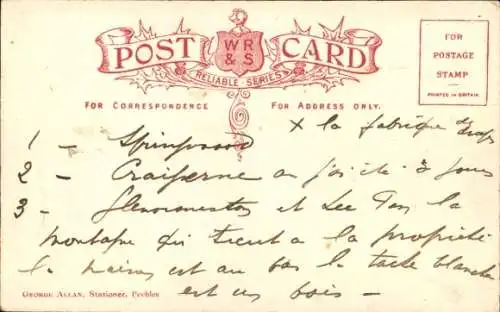 POST CARD
WR
& S
RELIABLE SERIES
FOR
POSTAGE
STAMP
PRINTED IN BRITAIN.
FOR CORRESPONDENCE
FOR ADDRESS ONLY.
x la fabrique de
1 - Springwood
2 - ou j'ai été à
3 - et Lee Pen la
montagne qui tient a la propriété
la maison est au bas la tache blanche
est un bois -
GEORGE ALLAN, Stationer, Peebles